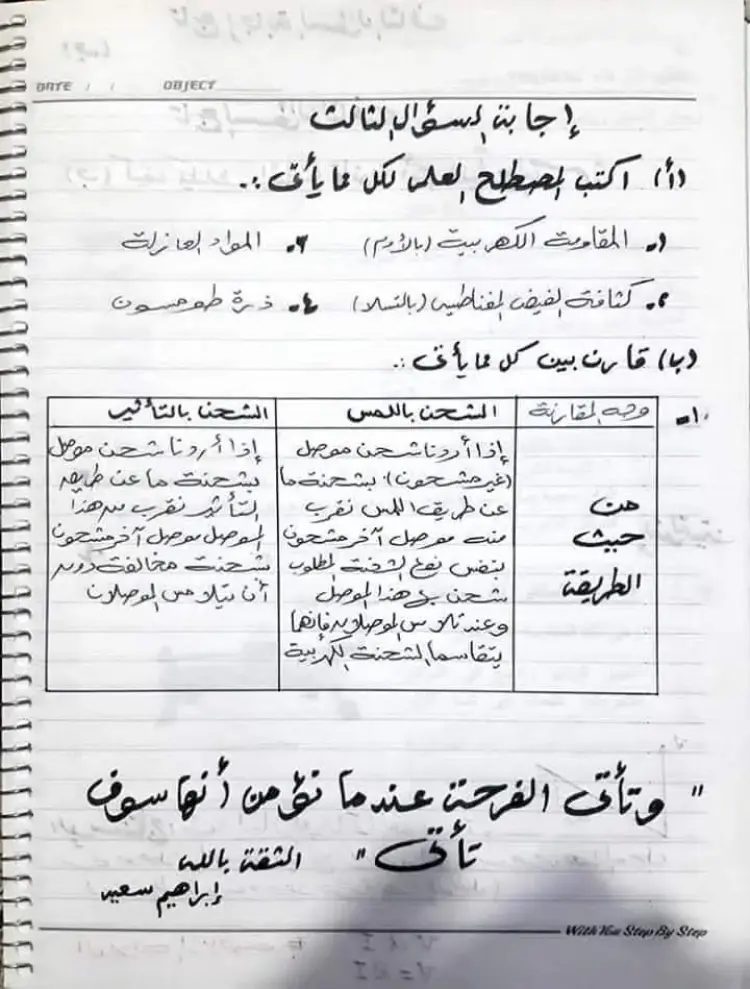 DATE / / OBJECT
إجابة السؤال الثالث
(أ) اكتب المصطلح العلمى لكل مما يأتى :.
١. المقاومة الكهربية (بالأوم) ٣. المواد العازلة
٢. كثافة الفيض المغناطيسى (بالتسلا) ٤. ذرة طومسون
(ب) قارن بين كل مما يأتى :.
١- وجه المقارنة الشحن باللمس الشحن بالتأثير
من
حيث
الطريقة
إذا أردنا شحن موصل
(غير مشحون) بشحنة ما
عن طريق اللمس نقرب
منه موصل آخر مشحون
بنفس نوع الشحنة المطلوب
شحن بها هذا الموصل
وعند تلامس الموصلان فإنهما
يتقاسما الشحنة الكهربية
إذا أردنا شحن موصل
بشحنة ما عن طريق
التأثير نقرب من هذا
الموصل موصل آخر مشحون
بشحنة مخالفة دون
أن يتلامس الموصلان
" وتأتى الفرحة عندما نؤمن أنها سوف
تأتى " الثقة بالله
إبراهيم سعيد
With You Step By Step